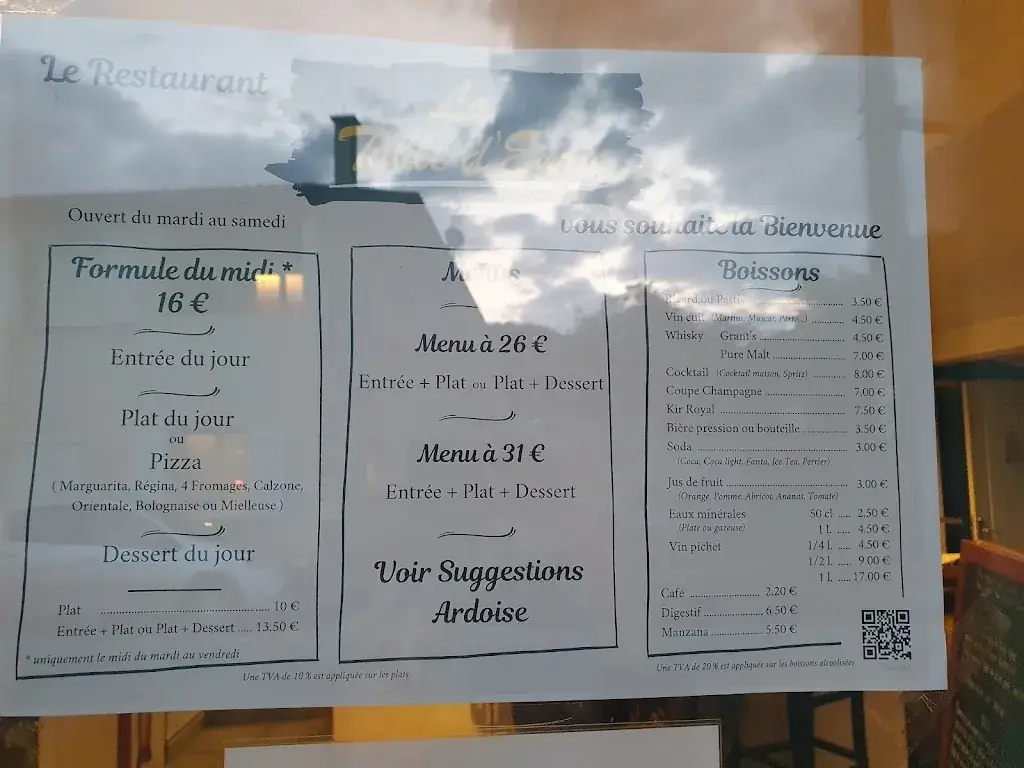 Le Restaurant
La
Table d'
Ouvert du mardi au samedi
vous souhaite la Bienvenue
Formule du midi *
16 €
Entrée du jour
Plat du jour
ou
Pizza
( Marguarita, Régina, 4 Fromages, Calzone,
Orientale, Bolognaise ou Mielleuse )
Dessert du jour
Plat ........................................ 10 €
Entrée + Plat ou Plat + Dessert ..... 13.50 €
* uniquement le midi du mardi au vendredi
Menus
Menu à 26 €
Entrée + Plat ou Plat + Dessert
Menu à 31 €
Entrée + Plat + Dessert
Voir Suggestions
Ardoise
Une TVA de 10 % est appliquée sur les plats
Boissons
Ricard ou Pastis ........................ 3.50 €
Vin cuit (Martini, Muscat, Porto...) ............ 4.50 €
Whisky Grant's ........................ 4.50 €
Pure Malt .................... 7.00 €
Cocktail (Cocktail maison, Spritz) ........... 8.00 €
Coupe Champagne ...................... 7.00 €
Kir Royal ................................ 7.50 €
Bière pression ou bouteille ............. 3.50 €
Soda ........................................ 3.00 €
(Coca, Coca light, Fanta, Ice Tea, Perrier)
Jus de fruit ................................ 3.00 €
(Orange, Pomme, Abricot, Ananas, Tomate)
Eaux minérales 50 cl .... 2.50 €
(Plate ou gazeuse) 1 l. ..... 4.50 €
Vin pichet 1/4 l. ..... 4.50 €
1/2 l. ..... 9.00 €
1 l. .... 17.00 €
Café ........................ 2.20 €
Digestif ..................... 6.50 €
Manzana .................... 5.50 €
Une TVA de 20 % est appliquée sur les boissons alcoolisées